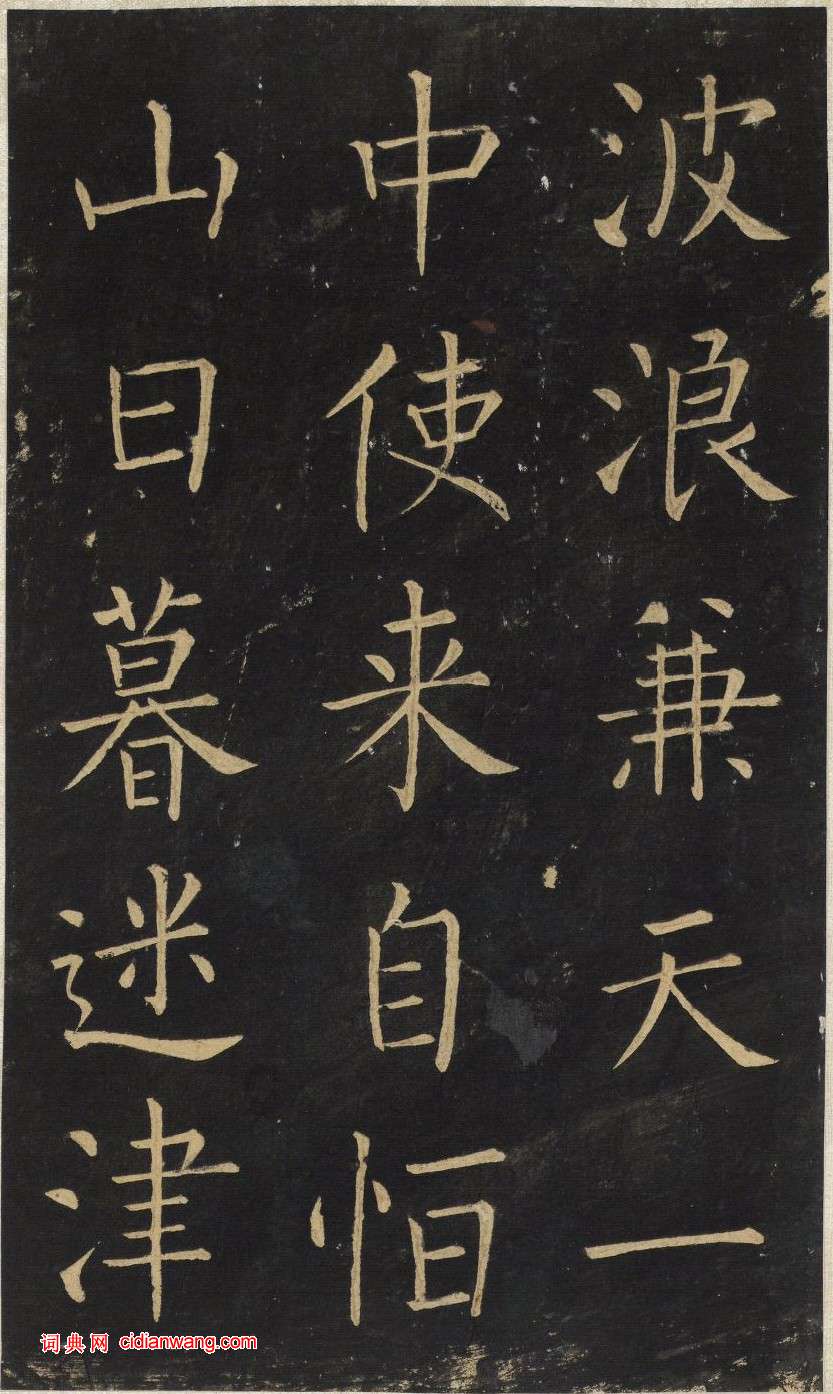 波浪兼天一
中使来自恒
山日暮迷津
词典网 cidianwang.com